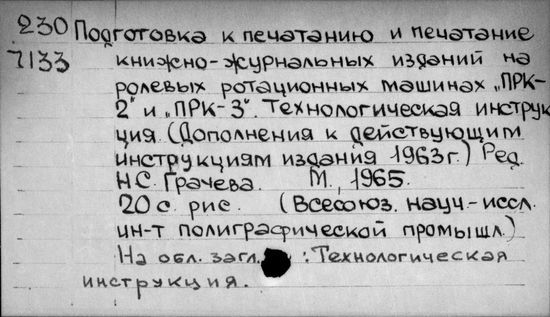 230 Подготовка к печатанию и печатание
7133 книжно-журнальных изданий на
ролевых ротационных машинах „ПРК-
2" и „ПРК-3". Технологическая инструк
ция. (Дополнения к действующим
инструкциям издания 1963г.) Ред.
Н.С. Грачева. М., 1965.
20 с. рис. (Всесоюз. науч-иссл.
ин-т полиграфической промышл.)
На обл. загл. : Технологическая
инструкция.